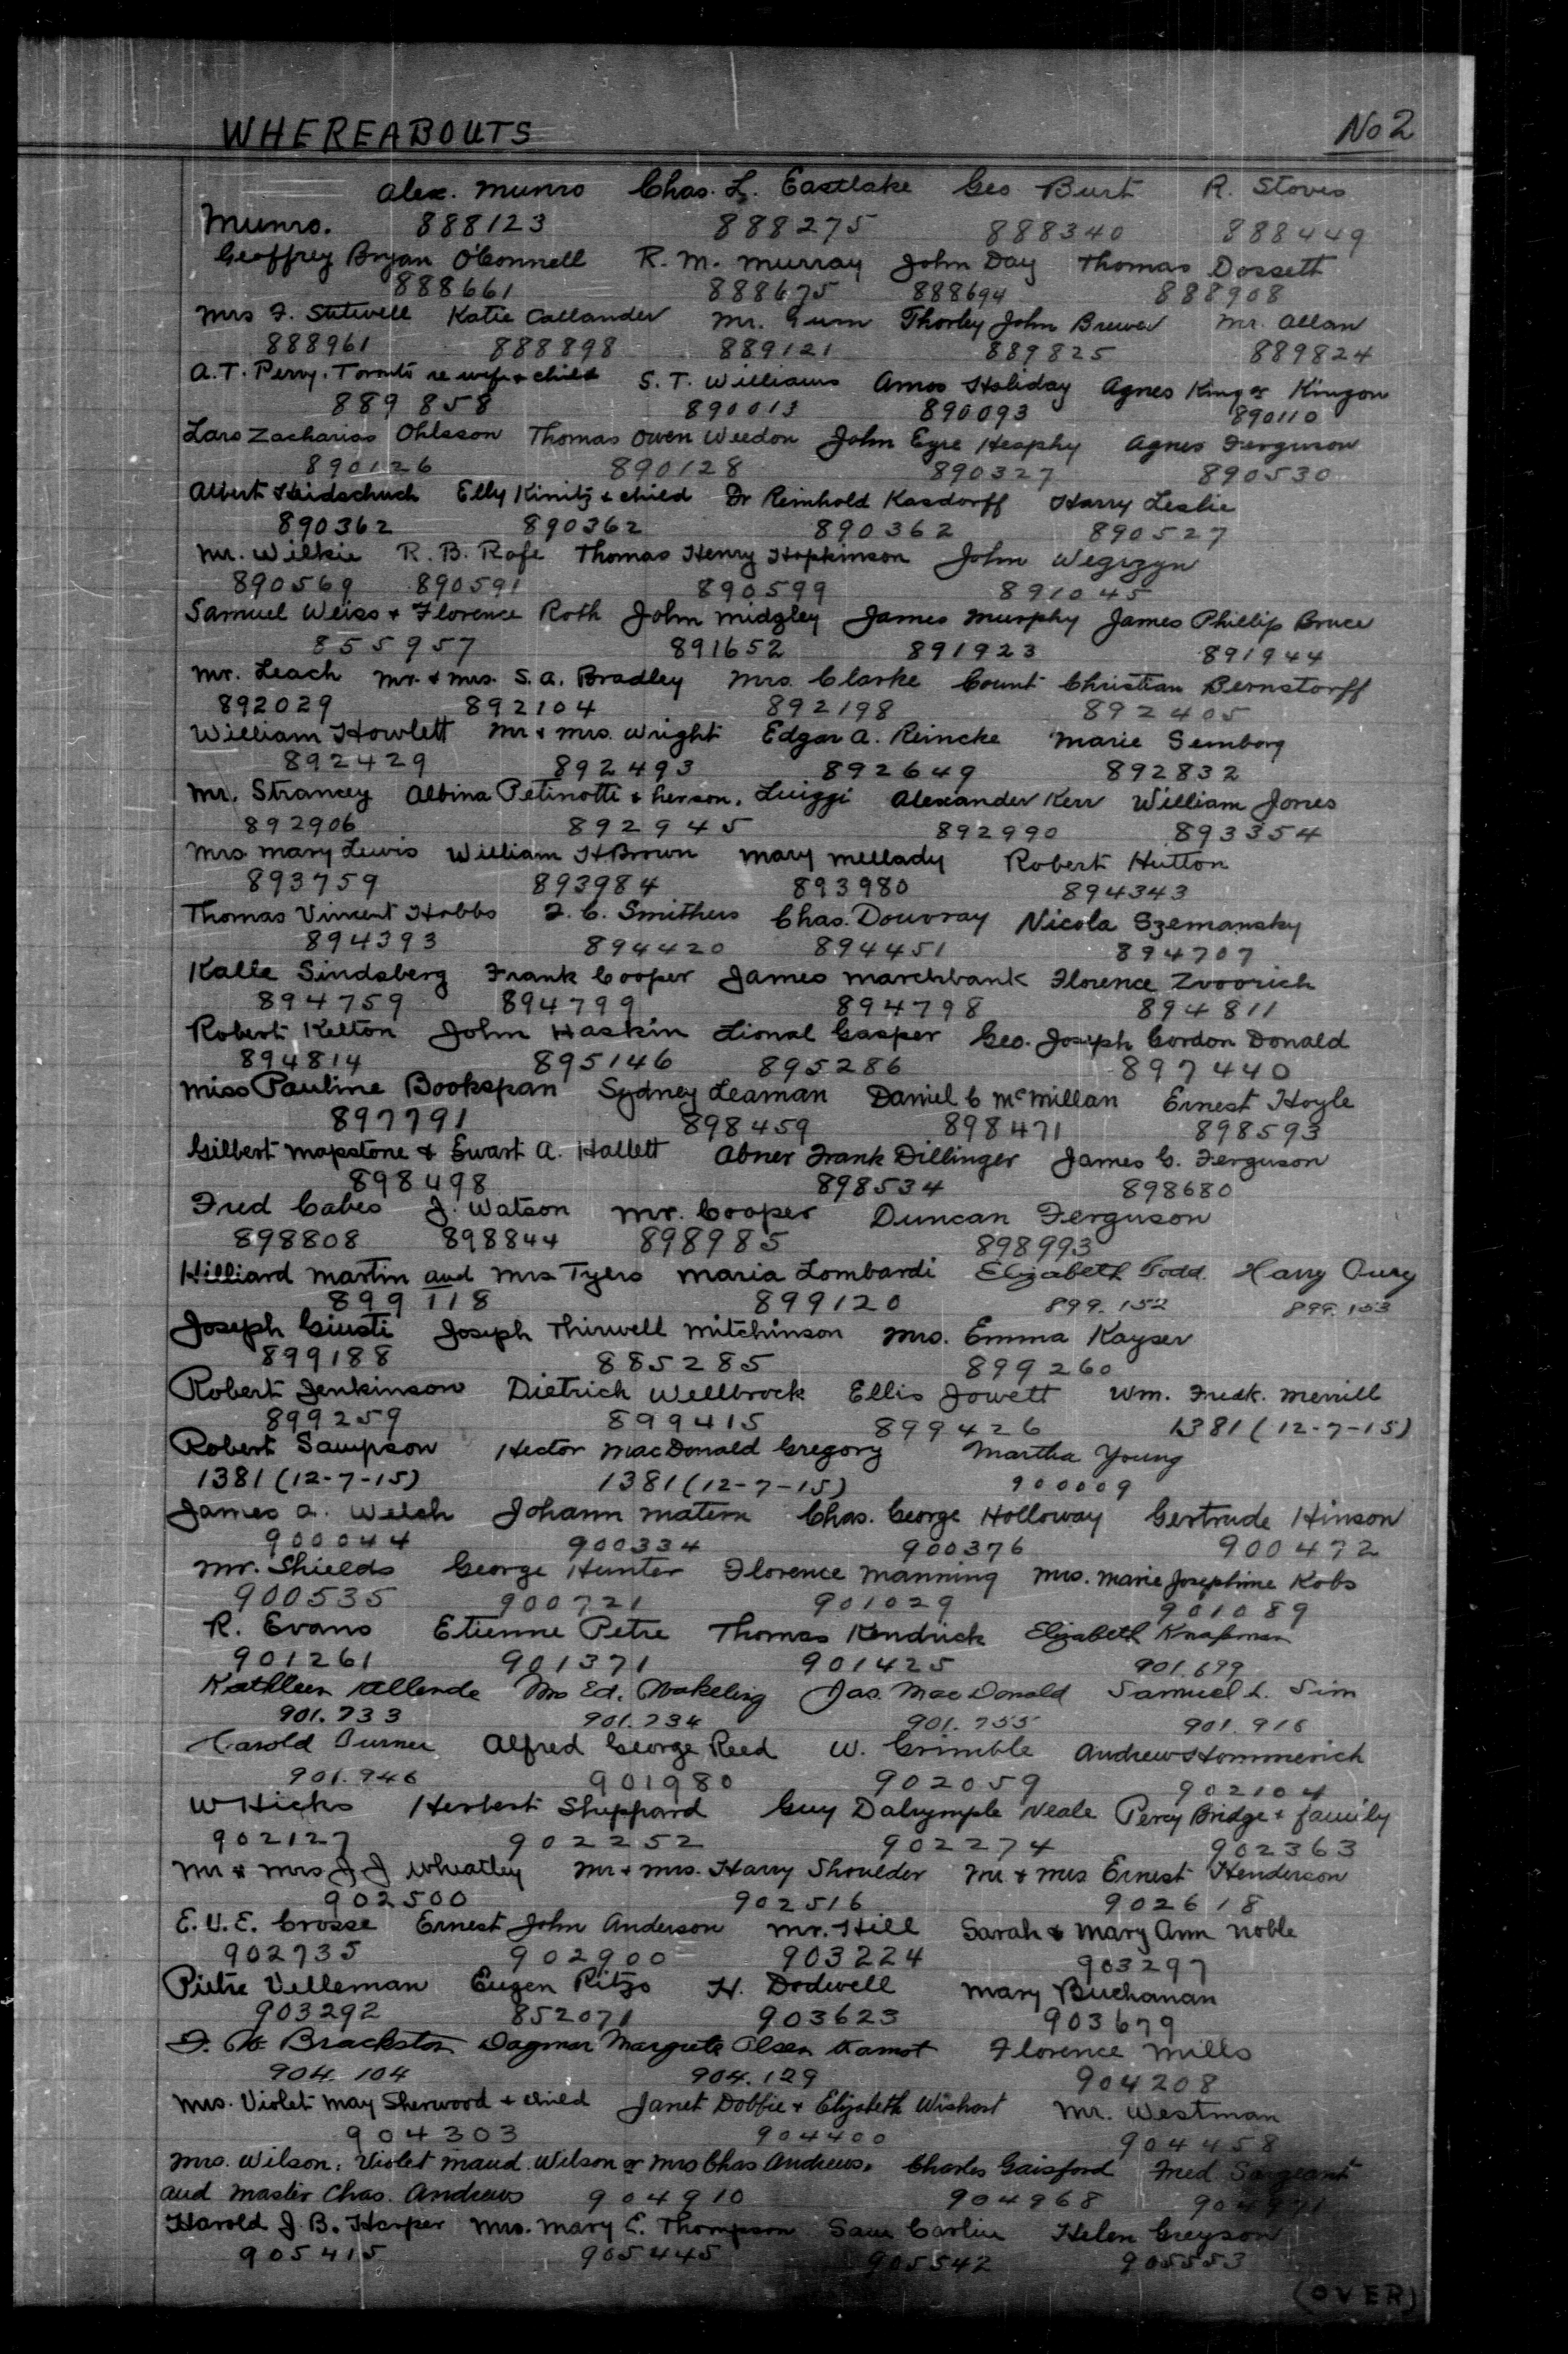 WHEREABOUTS No 2
Alex. Munro Chas. L. Eastlake Geo Burt R. Stoves
Munro. 888123 888275 888340 888449
Geoffrey Bryan O'Connell R. M. Murray John Day Thomas Dossett
888661 888675 888694 888908
Mrs F. Stilwell Katie Callander Mr. Gum Thorley John Brewer Mr. Allan
888961 888898 889121 889825 889824
A.T. Perry. Toronto re wife & child S. T. Williams Amos Holiday Agnes King or Kingon
889858 890013 890093 890110
Lars Zacharias Ohlsson Thomas Owen Weedon John Eyre Heaphy Agnes Ferguson
890126 890128 890327 890530
Albert Heidschuch Elly Kinitz & child Dr Reinhold Kasdorff Harry Leslie
890362 890362 890362 890527
Mr. Wilkie R. B. Rafe Thomas Henry Hopkinson John Wegrzyn
890569 890591 890599 891045
Samuel Weiss & Florence Roth John Midgley James Murphy James Phillip Bruce
855957 891652 891923 891944
Mr. Leach Mr. & Mrs. S. A. Bradley Mrs. Clarke Count Christian Bernstorff
892029 892104 892198 892405
William Howlett Mr & Mrs. Wright Edgar A. Reincke Marie Semborg
892429 892493 892649 892832
Mr. Strancey Albina Petinotti & her son, Luiggi Alexander Kerr William Jones
892906 892945 892990 893354
Mrs Mary Lewis William H Brown Mary Mellady Robert Hutton
893759 893984 893980 894343
Thomas Vincent Hobbs F. C. Smithers Chas. Douvray Nicola Szemansky
894393 894420 894451 894707
Kalle Sindsberg Frank Cooper James Marchbank Florence Zvoorich
894759 894799 894798 894811
Robert Kelton John Haskin Lional Gasper Geo. Joseph Gordon Donald
894814 895146 895286 897440
Miss Pauline Bookspan Sydney Leaman Daniel C McMillan Ernest Hoyle
897791 898459 898471 898593
Gilbert Mapstone & Ewart A. Hallett Abner Frank Dillinger James G. Ferguson
898498 898534 898680
Fred Cabes J. Watson Mr. Cooper Duncan Ferguson
898808 898844 898985 898993
Hilliard Martin and Mrs Tyers Maria Lombardi Elizabeth Todd. Harry
899118 899120 899.152 899.153
Joseph Giusti Joseph Thirwell Mitchinson Mrs. Emma Kayser
899188 885285 899260
Robert Jenkinson Dietrich Wellbrock Ellis Jowett Wm. Fredk. Merrill
899259 899415 899426 1381 (12-7-15)
Robert Sampson Hector MacDonald Gregory Martha Young
1381 (12-7-15) 1381 (12-7-15) 900009
James A. Welch Johann Matern Chas. George Holloway Gertrude Hinson
900044 900334 900376 900472
Mr. Shields George Hunter Florence Manning Mrs. Marie Josephine Kobs
900535 900721 901029 901089
R. Evans Etienne Petre Thomas Kendrick Elizabeth Knapman
901261 901371 901425 901.699
Kathleen Allende Mrs Ed. Wakeling Jas. MacDonald Samuel L. Sim
901.733 901.734 901.755 901.916
Harold Turner Alfred George Reed W. Grimble Andrew Hommerich
901.946 901980 902059 902104
W Hicks Herbert Sheppard Guy Dalrymple Neale Percy Bridge & family
902127 902252 902274 902363
Mr & Mrs J J Wheatley Mr & Mrs. Harry Shoulder Mr & Mrs Ernest Henderson
902500 902516 902618
E. V. E. Crosse Ernest John Anderson Mr. Hill Sarah & Mary Ann Noble
902735 902900 903224 903297
Pietre Velleman Eugen Ritzo H. Dodwell Mary Buchanan
903292 852071 903623 903679
F. W. Brackston Dagmar Margrete Olsen Kamot Florence Mills
904.104 904.129 904208
Mrs. Violet May Sherwood & child Janet Dobbie & Elizabeth Wishart Mr. Westman
904303 904400 904458
Mrs. Wilson: Violet Maud Wilson or Mrs Chas Andrews. Charles Gaisford Fred Sargeant
and Master Chas. Andrews 904910 904968 904971
Harold J. B. Harper Mrs. Mary E. Thompson Sam Carlin Helen Greyson
905415 905445 905542 905553
(OVER)